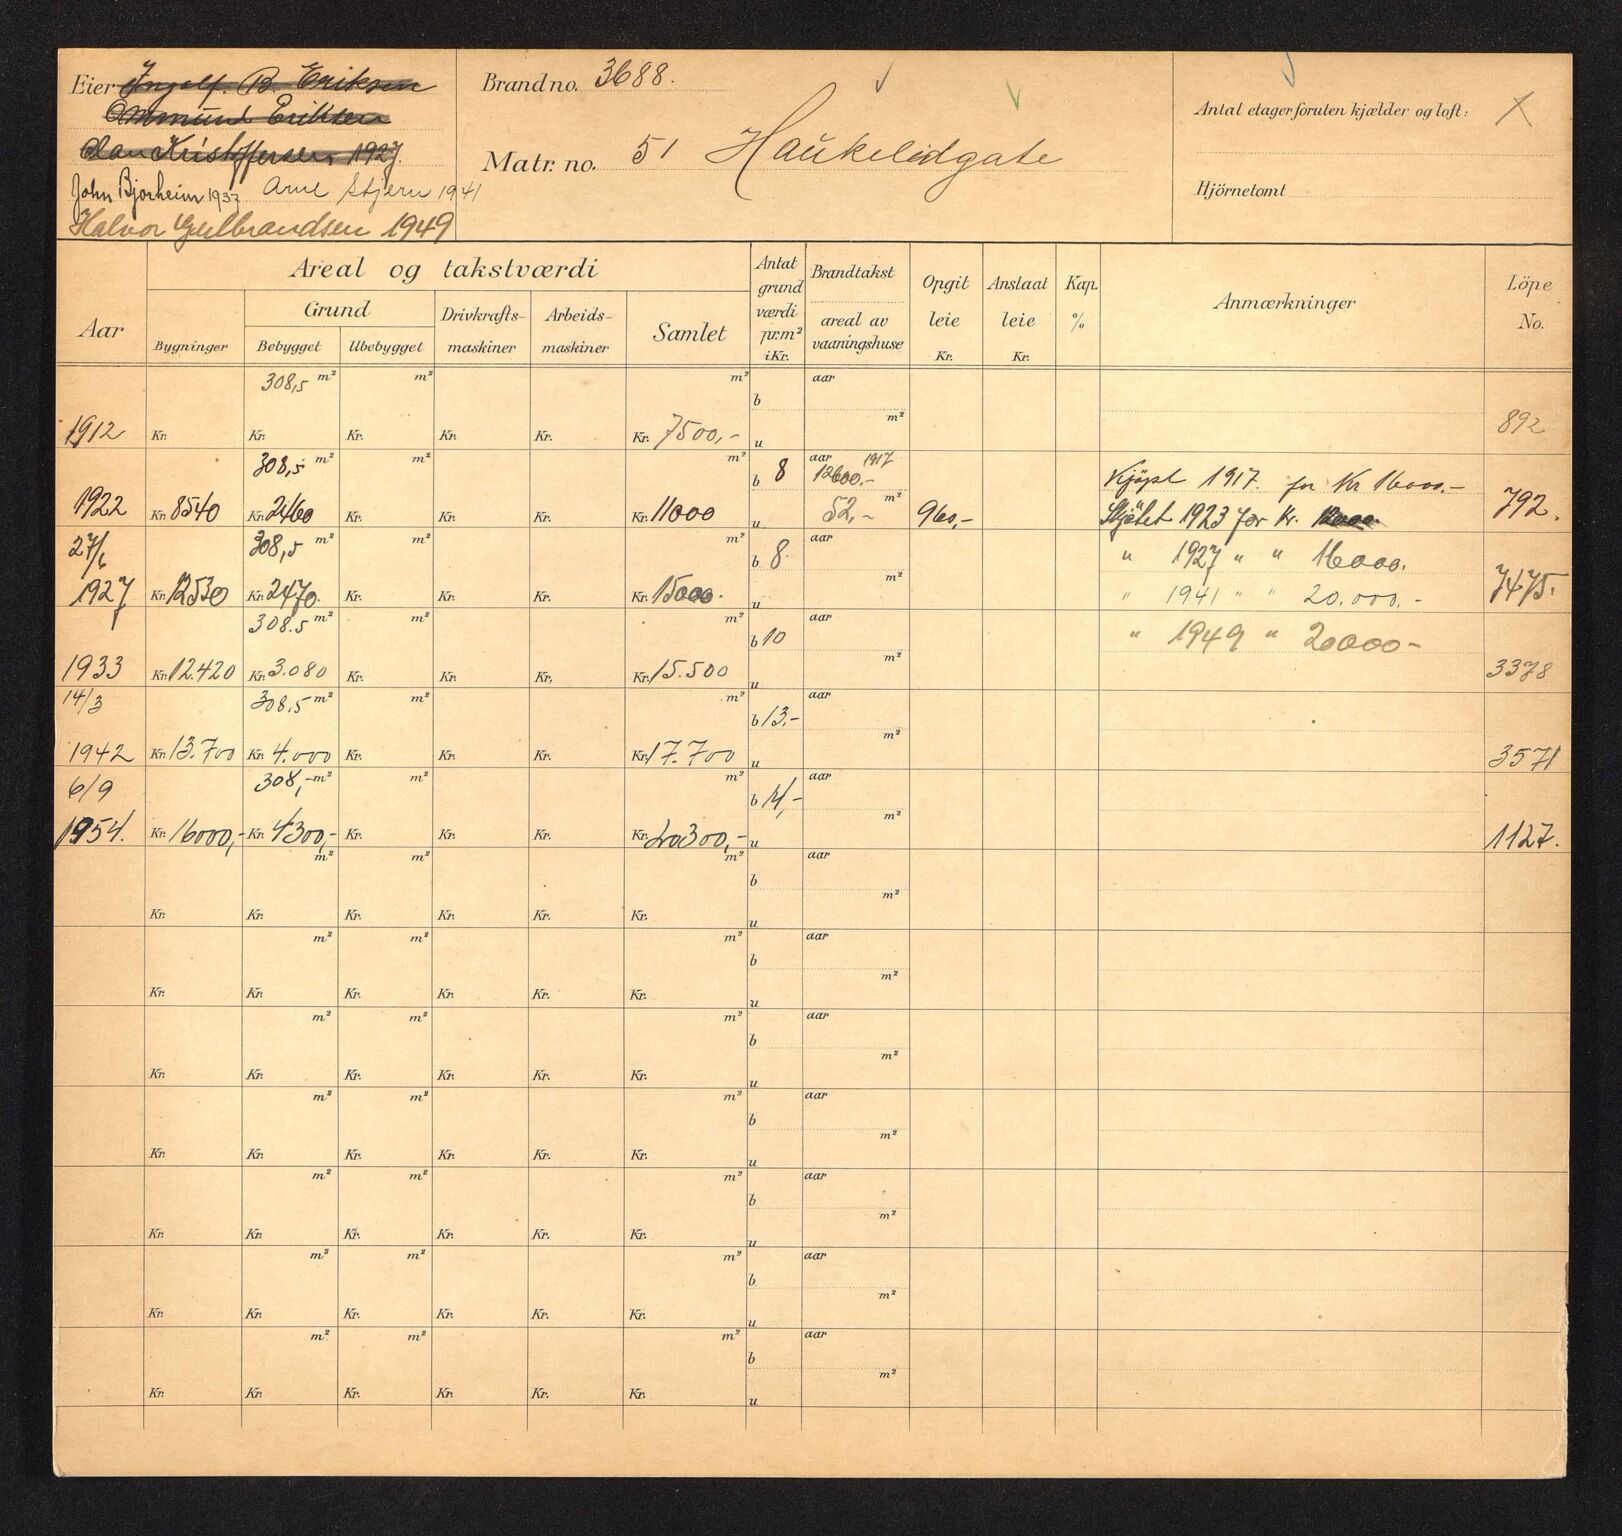 Eier Ingolf. B. Eriksen
Ommund Eriksen
Olav Kristoffersen 1927.
John Bjorheim 1937 Arne Stjern 1941
Halvor Gulbrandsen 1949
Brand no. 3688.
Matr. no. 51 Haukelidgate
Antal etager foruten kjælder og loft:
Hjörnetomt
Aar
Areal og takstværdi
Grund
Bygninger Bebygget Ubebygget
Drivkrafts-
maskiner
Arbeids-
maskiner
Samlet
Antat
grund
værdi
pr. m²
i Kr.
Brandtakst
areal av
vaaningshuse
Opgit
leie
Kr.
Anslaat
leie
Kr.
Kap.
%
Anmærkninger
Löpe
No.
308,5 m² m² m² b aar
1912 Kr. Kr. Kr. Kr. Kr. Kr. 7500,- u m² 892
308,5 m² m² m² b 8 aar 1917 12600.- Kjöpt 1917. for Kr 16000.-
1922 Kr. 8540 Kr. 2460 Kr. Kr. Kr. Kr. 11000 u 52,- m² 960,- Skjötet 1923 for Kr. 12000. 792.
27/6 308,5 m² m² m² b 8. aar " 1927 " " 16000.
1927 Kr. 12530 Kr. 2470. Kr. Kr. Kr. Kr. 15000. u m² " 1941 " " 20.000.- 7475.
308.5 m² m² m² b 10 aar " 1949 " 20000-
1933 Kr. 12.420 Kr. 3.080 Kr. Kr. Kr. Kr. 15.500 u m² 3378
14/3 308,5 m² m² m² b 13,- aar
1942 Kr. 13.700 Kr. 4.000 Kr. Kr. Kr. Kr. 17.700 u m² 3571
6/9 308,- m² m² m² b 14,- aar
1954. Kr. 16000,- Kr. 4300,- Kr. Kr. Kr. Kr. 20300,- u m² 1127.
m² m² m² b aar
Kr. Kr. Kr. Kr. Kr. Kr. u m²
m² m² m² b aar
Kr. Kr. Kr. Kr. Kr. Kr. u m²
m² m² m² b aar
Kr. Kr. Kr. Kr. Kr. Kr. u m²
m² m² m² b aar
Kr. Kr. Kr. Kr. Kr. Kr. u m²
m² m² m² b aar
Kr. Kr. Kr. Kr. Kr. Kr. u m²
m² m² m² b aar
Kr. Kr. Kr. Kr. Kr. Kr. u m²
m² m² m² b aar
Kr. Kr. Kr. Kr. Kr. Kr. u m²